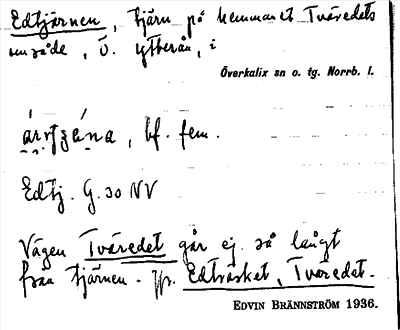 Edtjärnen, tjärn på hemmanet Tväredets
område, ö. ytterån, i
Överkalix sn o. tg. Norrb. l.
bf. fem.
Edtj. G. 30 NV
Vägen Tväredet går ej så långt
från tjärnen. Jfr. Edträsket, Tväredet.
EDVIN BRÄNNSTRÖM 1936.